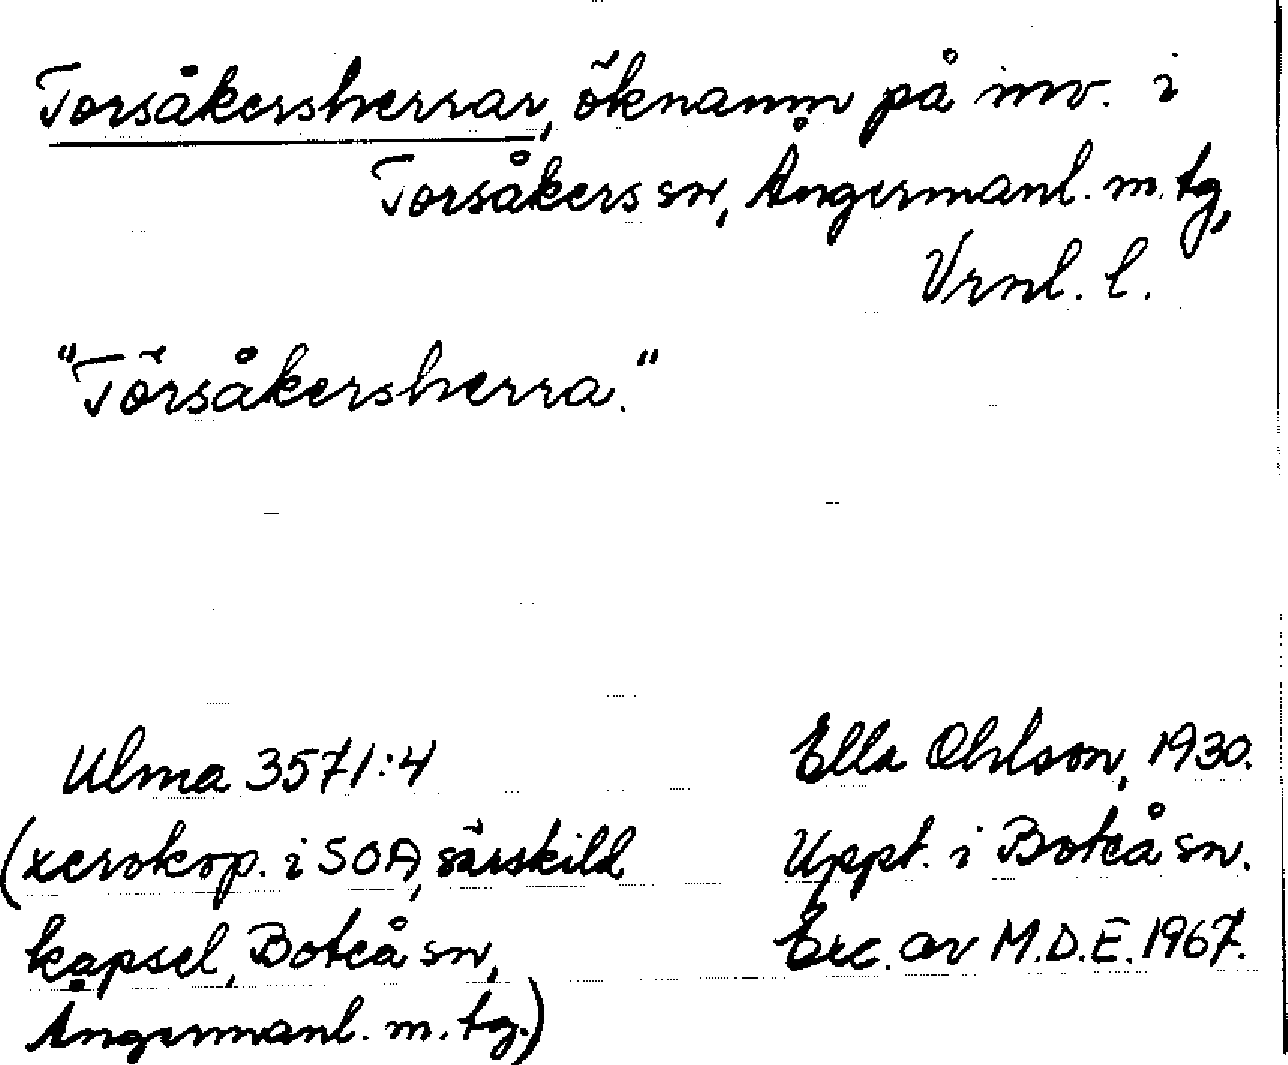 Torsåkersherrar, öknamn på inv. i
Torsåkers sn, Ångermanl. m. tg,
Vrnl. l.
"Törsåkersherra."
Ulma 3571:4
(xerokop. i SOA, särskild
kapsel, Boteå sn,
Ångermanl. m. tg.)
Ella Ohlson, 1930.
Uppt. i Boteå sn.
Exc. av M.D.E. 1967.